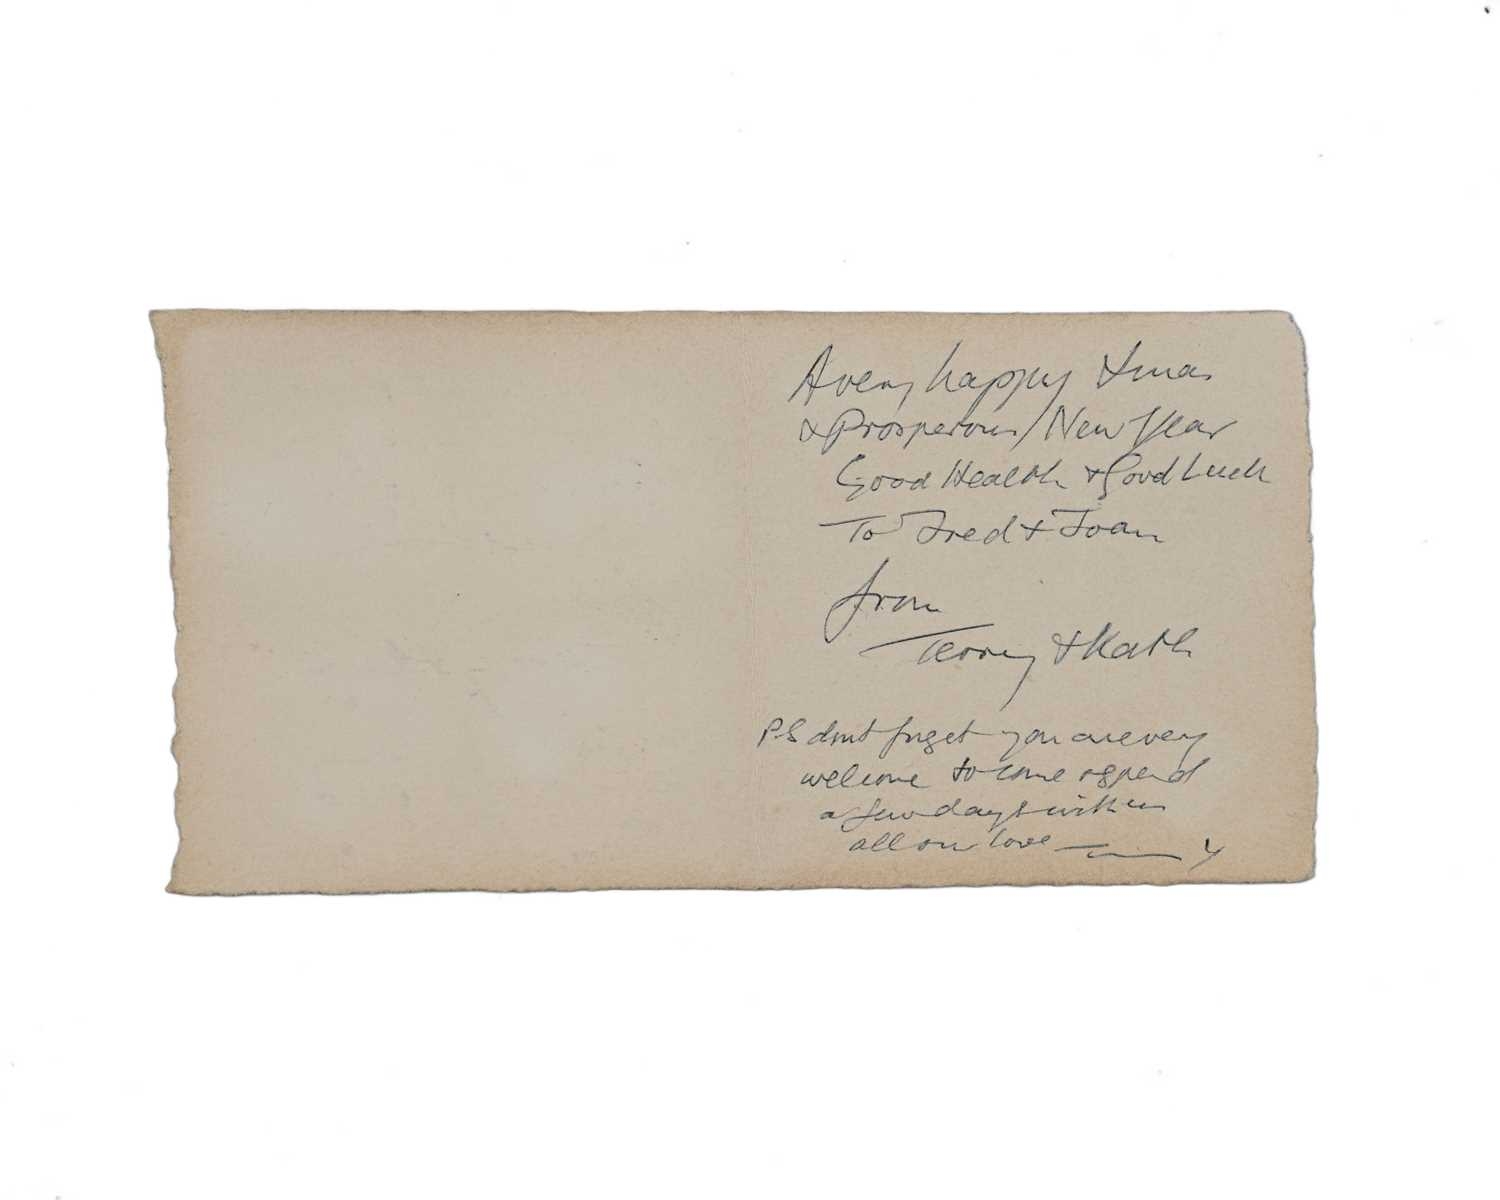 A very happy Xmas
& Prosperous / New Year
Good Health & Good Luck
To Fred & Joan
from
Terry & Kath
P.S dont forget you are very
welcome to come & spend
a few days with us
all our love